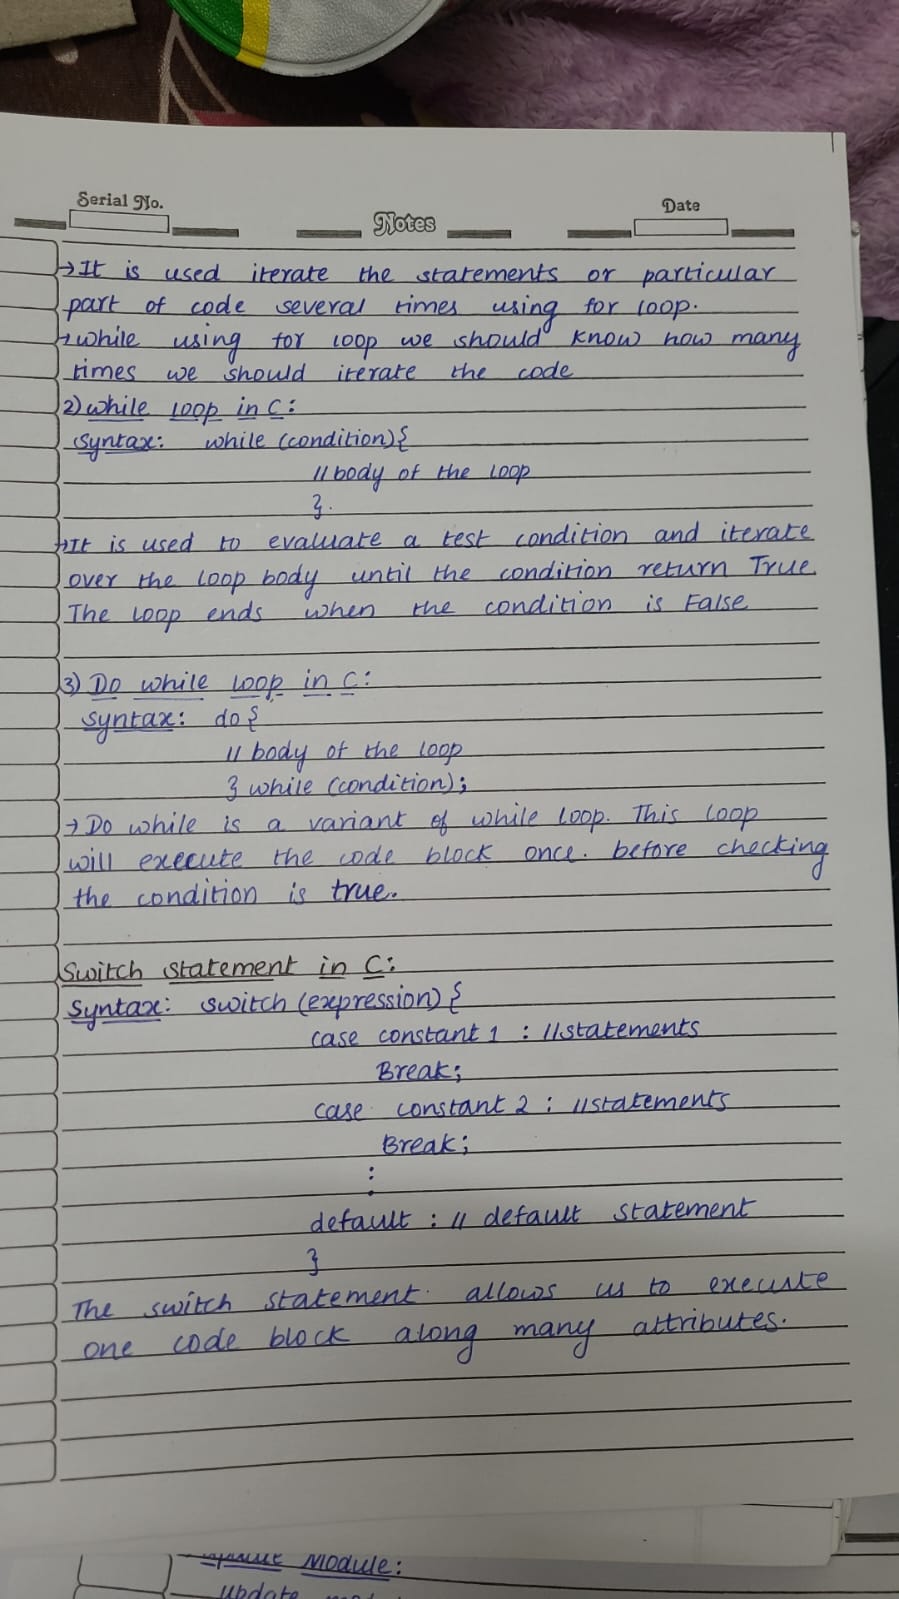 Serial No.
Notes
Date
→It is used iterate the statements or particular
part of code several times using for loop.
→while using for loop we should know how many
times we should iterate the code
2) while loop in C:
Syntax: while (condition){
// body of the loop
}.
→It is used to evaluate a test condition and iterate
over the loop body until the condition return True.
The loop ends when the condition is False
3) Do while loop in C:
Syntax: do {
// body of the loop
} while (condition);
→ Do while is a variant of while loop. This loop
will execute the code block once. before checking
the condition is true.
Switch statement in C:
Syntax: switch (expression) {
case constant 1 : //statements
Break;
case constant 2 : //statements
Break;
:
default : // default statement
}
The switch statement allows us to execute
one code block along many attributes.
Module:
update